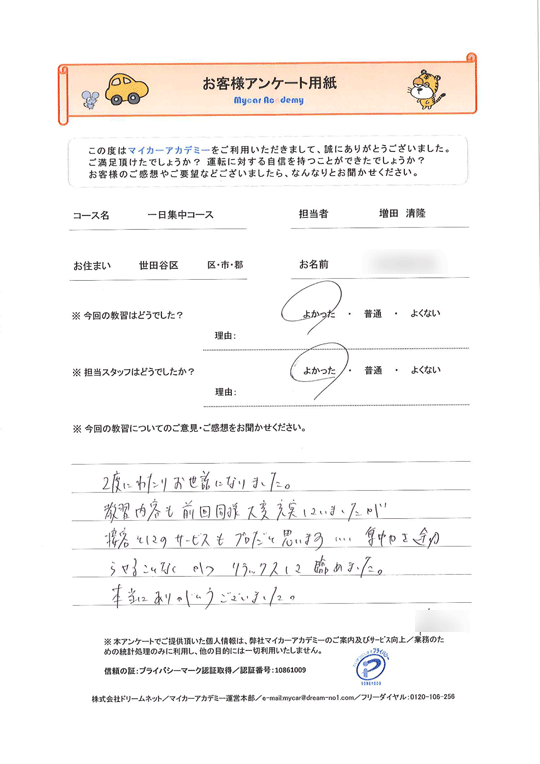 お客様アンケート用紙
Mycar Academy
この度はマイカーアカデミーをご利用いただきまして、誠にありがとうございました。
ご満足頂けたでしょうか？ 運転に対する自信を持つことができたでしょうか？
お客様のご感想やご要望などございましたら、なんなりとお聞かせください。
コース名 一日集中コース 担当者 増田 清隆
お住まい 世田谷区 区・市・郡 お名前
※ 今回の教習はどうでした？ よかった ・ 普通 ・ よくない
理由：
※ 担当スタッフはどうでしたか？ よかった ・ 普通 ・ よくない
理由：
※ 今回の教習についてのご意見・ご感想をお聞かせください。
2度にわたりお世話になりました。
教習内容も前回同様大変充実していましたが
接客としてのサービスもプロだと思います…. 集中力を途切
らせることなくかつリラックスして臨めました。
本当にありがとうございました。
※ 本アンケートでご提供頂いた個人情報は、弊社マイカーアカデミーのご案内及びサービス向上／業務のた
めの統計処理のみに利用し、他の目的には一切利用いたしません。
信頼の証：プライバシーマーク認証取得／認証番号：10861009
株式会社ドリームネット／マイカーアカデミー運営本部／e-mail:mycar@dream-no1.com／フリーダイヤル：0120-106-256